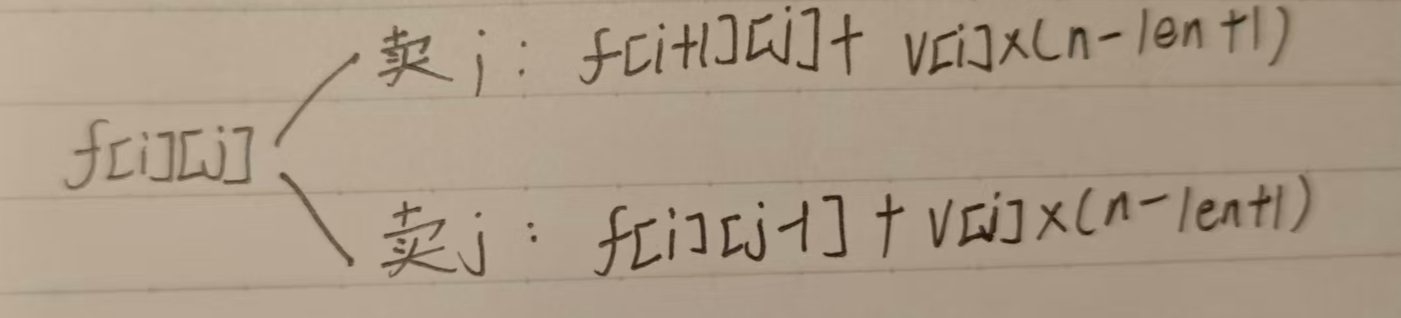 卖j: f[i+1][j]+ v[i]×(n-len+1)
f[i][j]
卖j: f[i][j-1]+v[j]×(n-len+1)